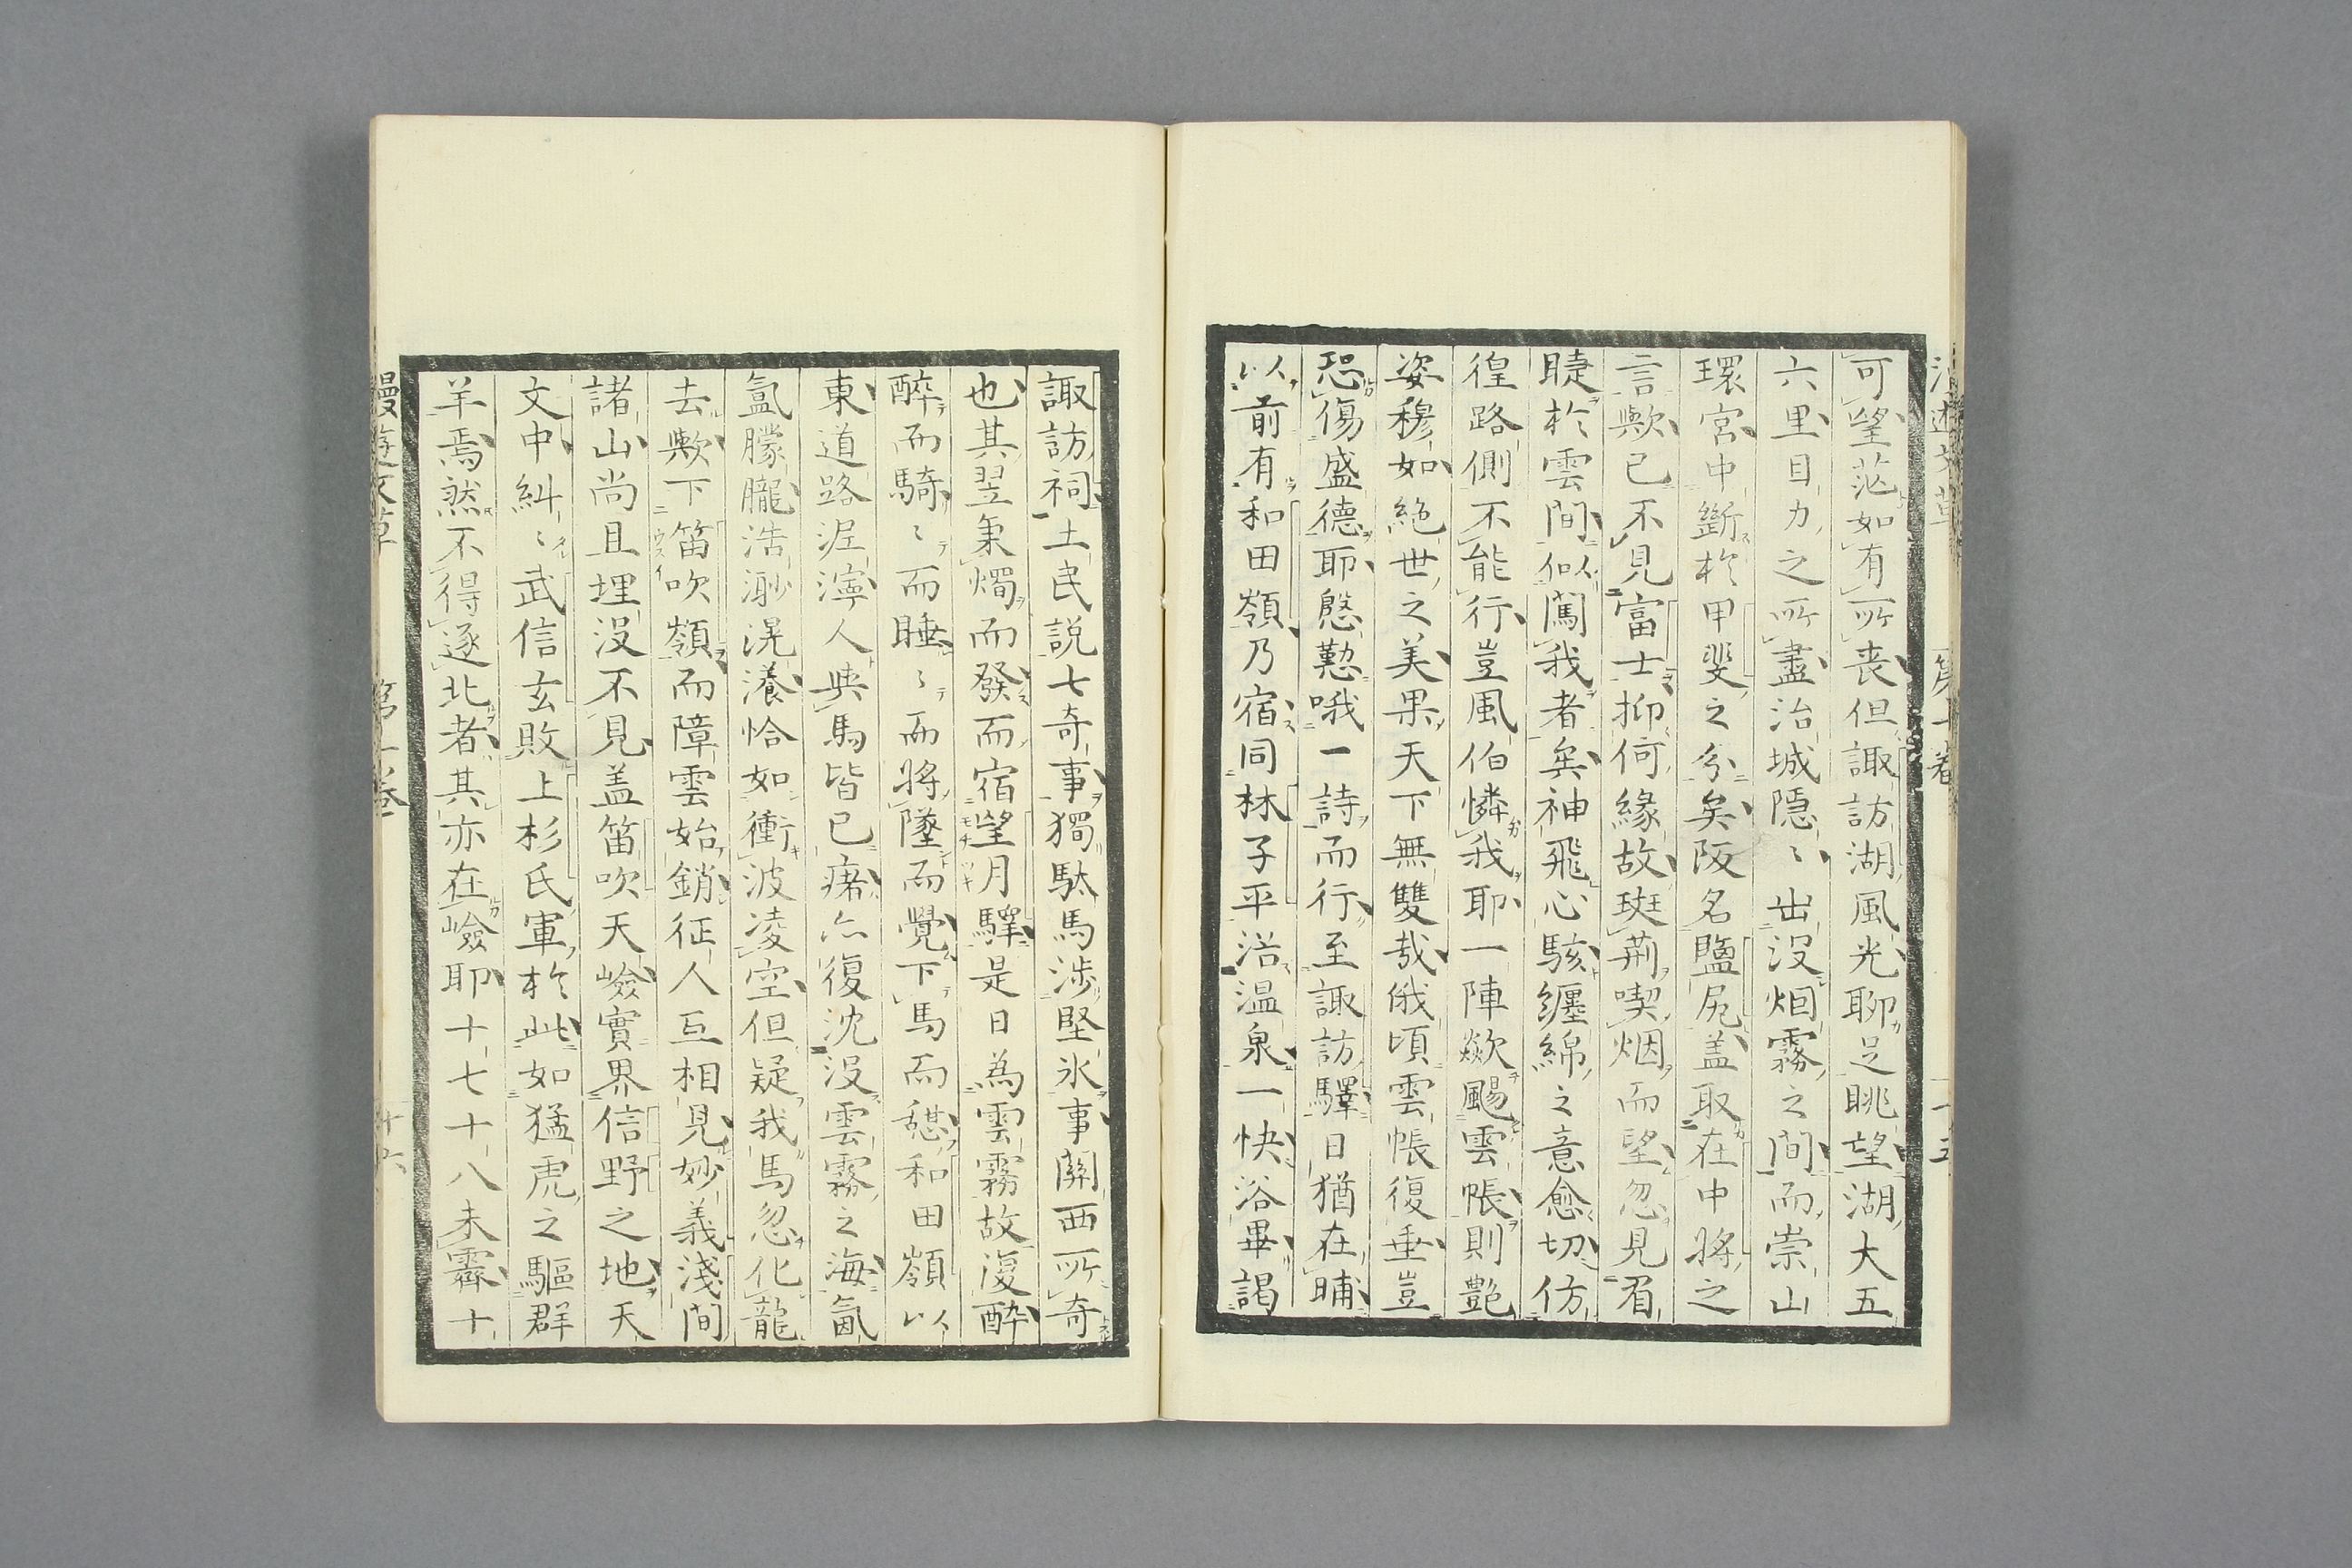 可望茫如有所喪但諏訪湖風光聊足眺望湖大五
六里目力之所盡治城隠〻出没烟霧之間而崇山
環宮中斷於甲斐之分矣阪名鹽尻盖取在中將之
言歟已不見富士抑何縁故斑荊喫烟而望忽見眉
睫於雲間似闖我者矣神飛心駭纏綿之意愈切仿
徨路側不能行豈風伯憐我耶一陣歘颺雲帳則艷
姿穆如絶世之美果天下無雙哉俄頃雲帳復垂豈
恐傷盛德耶慇懃哦一詩而行至諏訪驛日猶在晡
以前有和田嶺乃宿同林子平浴温泉一快浴畢謁
諏訪祠土民説七奇事獨駄馬渉堅氷事關西所奇
也其翌秉燭而發而宿望月驛是日為雲霧故復酔
醉而騎〻而睡〻而將墜而覺下馬而憇和田嶺以
東道路泥濘人與馬皆已瘏亦復沈没雲霧之海氤
氳朦朧浩渺滉瀁恰如衝波凌空但疑我馬忽化龍
去歟下笛吹嶺而障雲始銷征人互相見妙義淺間
諸山尚且埋没不見盖笛吹天嶮實界信野之地天
文中糾〻武信玄敗上杉氏軍於此如猛虎之驅群
羊焉然不得逐北者其亦在嶮耶十七十八未霽十
漫遊文草 第一卷